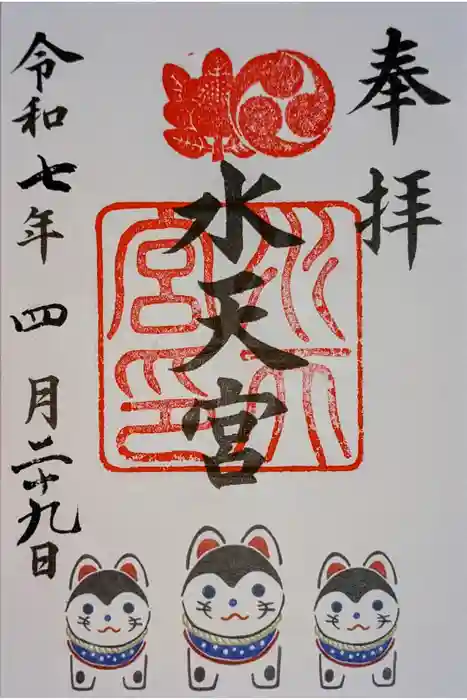 奉拝
水天宮
令和七年四月二十九日
水天宮印